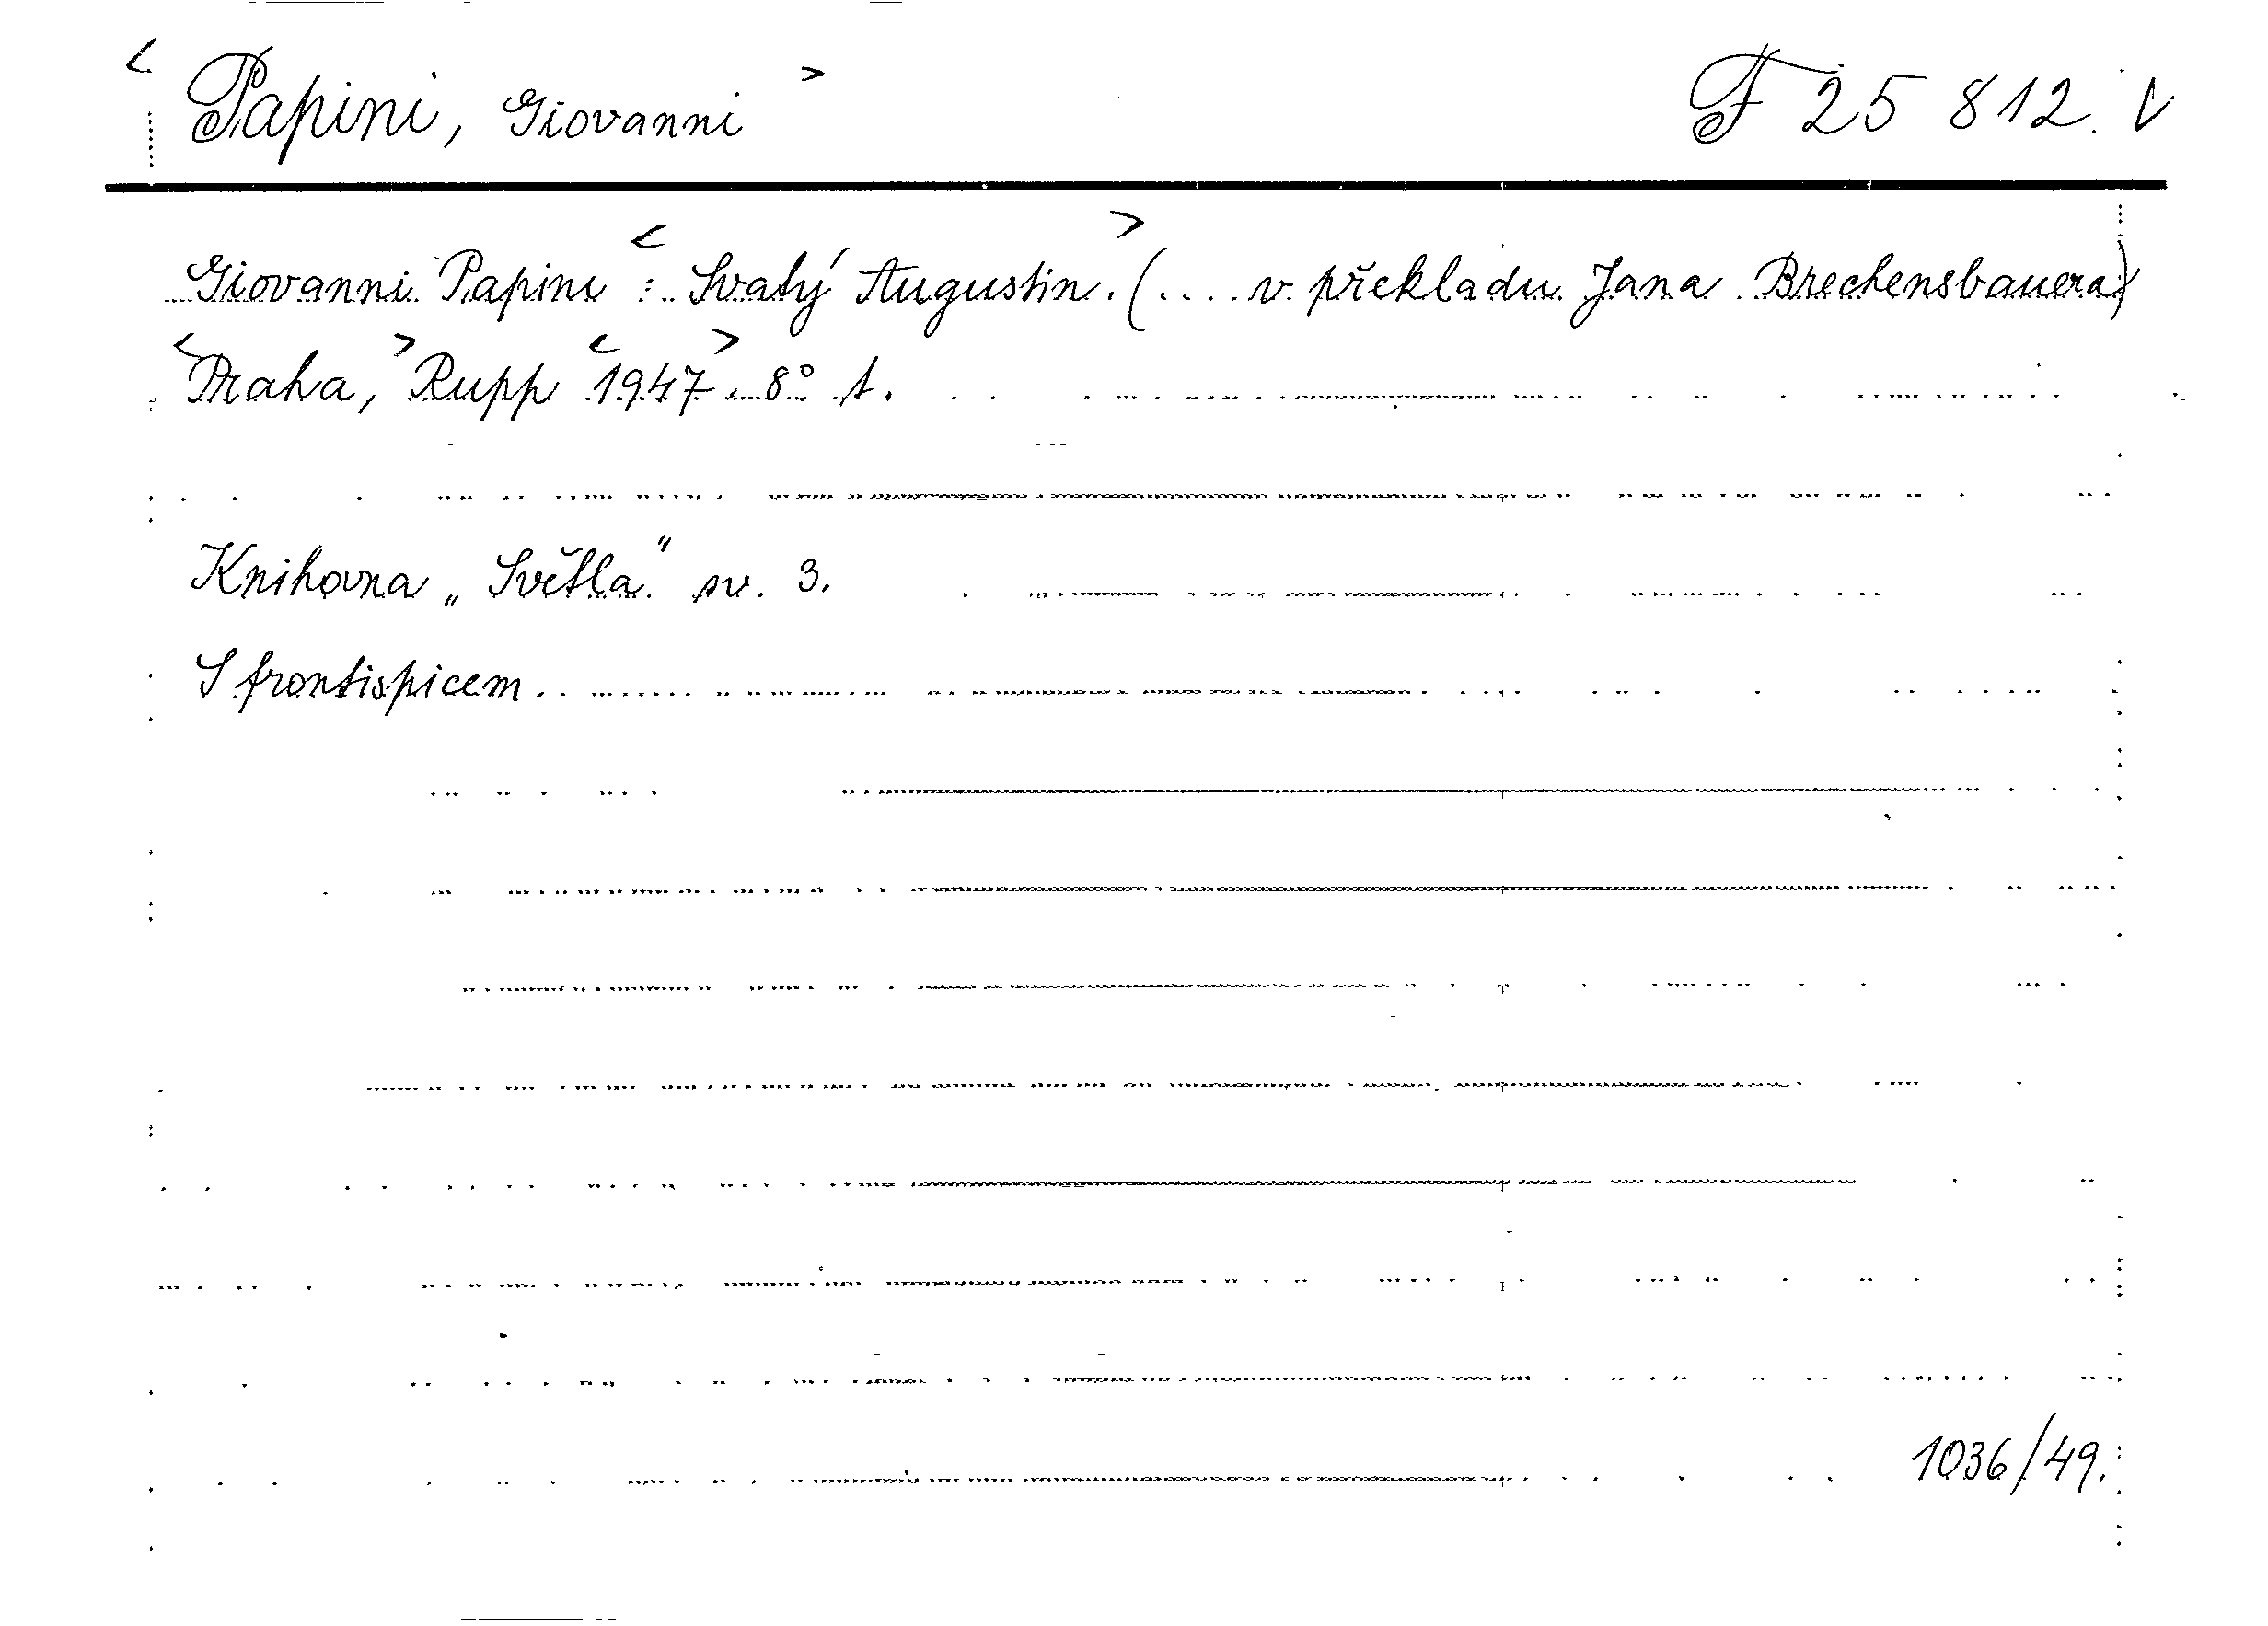 < Papini, Giovanni > F 25 812. V
Giovanni Papini : < Svatý Augustin. > (.... v překladu Jana Brechensbauera)
< Praha, > Rupp < 1947 > . 8° t.
Knihovna „Světla" sv. 3.
S frontispicem.
1036/49.